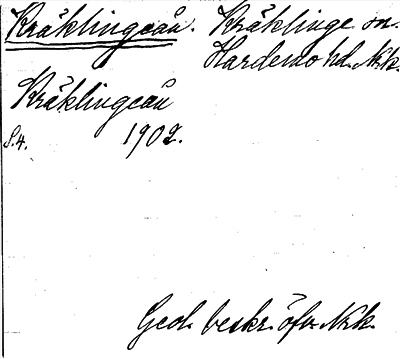 Kräklingeån. Kräklinge sn.
Hardemo hd. Nkk.
Kräklingeån
S.4. 1902.
Geol. beskr. öfv. Nkk.